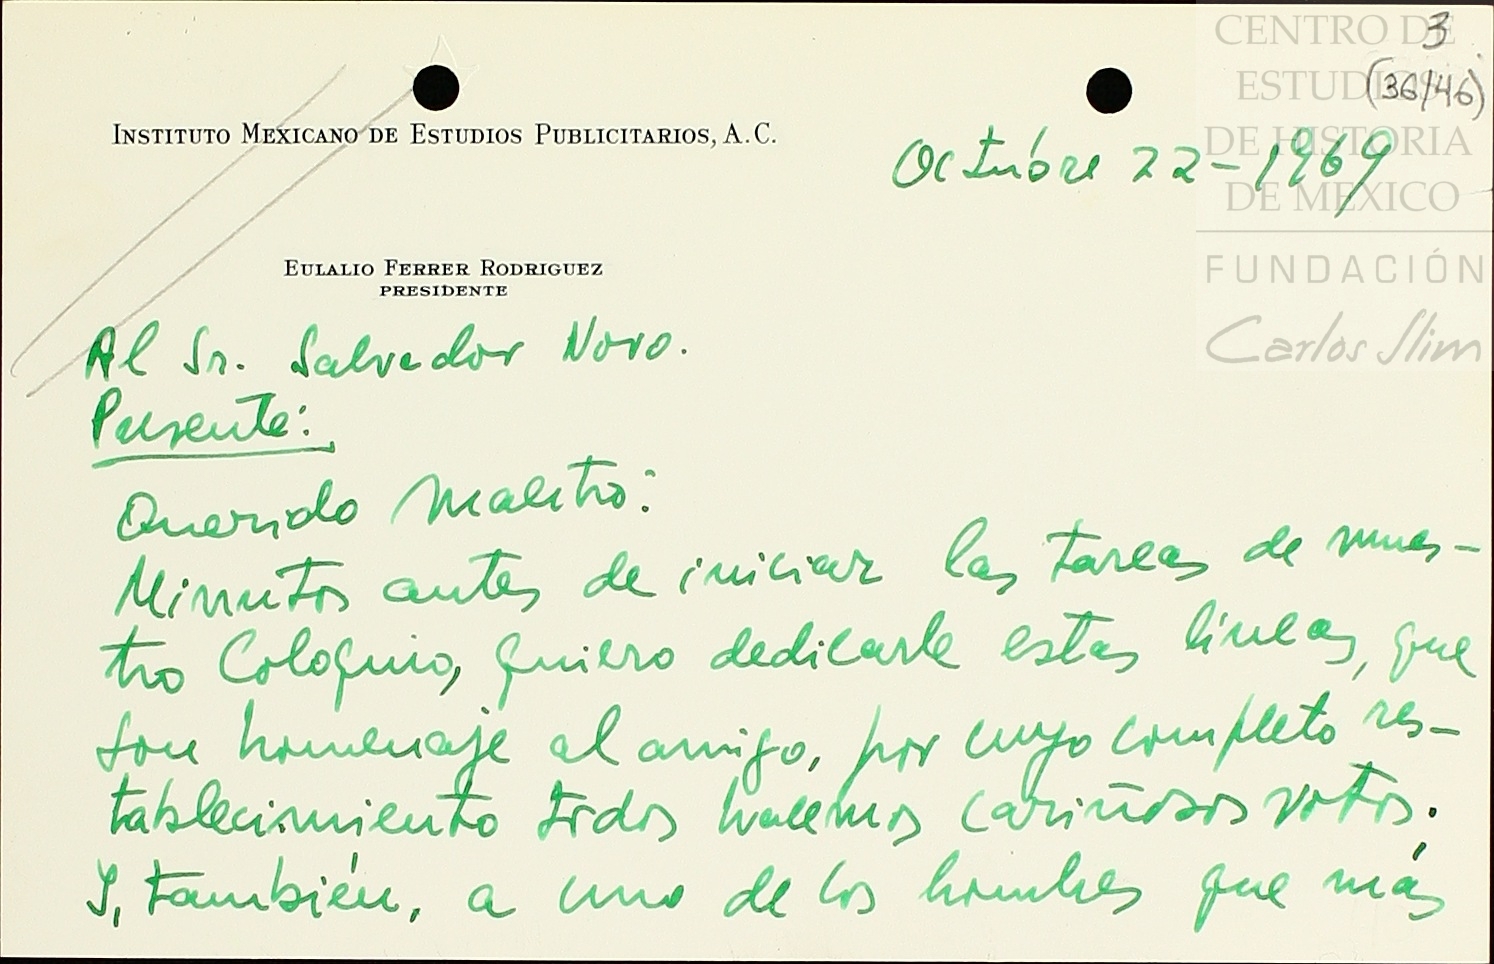 CENTRO DE
ESTUDIOS
DE HISTORIA
DE MEXICO
FUNDACIÓN
Carlos Slim
3
(36/46)
INSTITUTO MEXICANO DE ESTUDIOS PUBLICITARIOS, A.C.
Octubre 22-1969
EULALIO FERRER RODRIGUEZ
PRESIDENTE
Al Sr. Salvador Novo.
Presente:
Querido Maestro:
Minutos antes de iniciar las tareas de nues-
tro Coloquio, quiero dedicarle estas líneas, que
son homenaje al amigo, por cuyo completo res-
tablecimiento todos hacemos cariñosos votos.
Y, también, a uno de los hombres que más